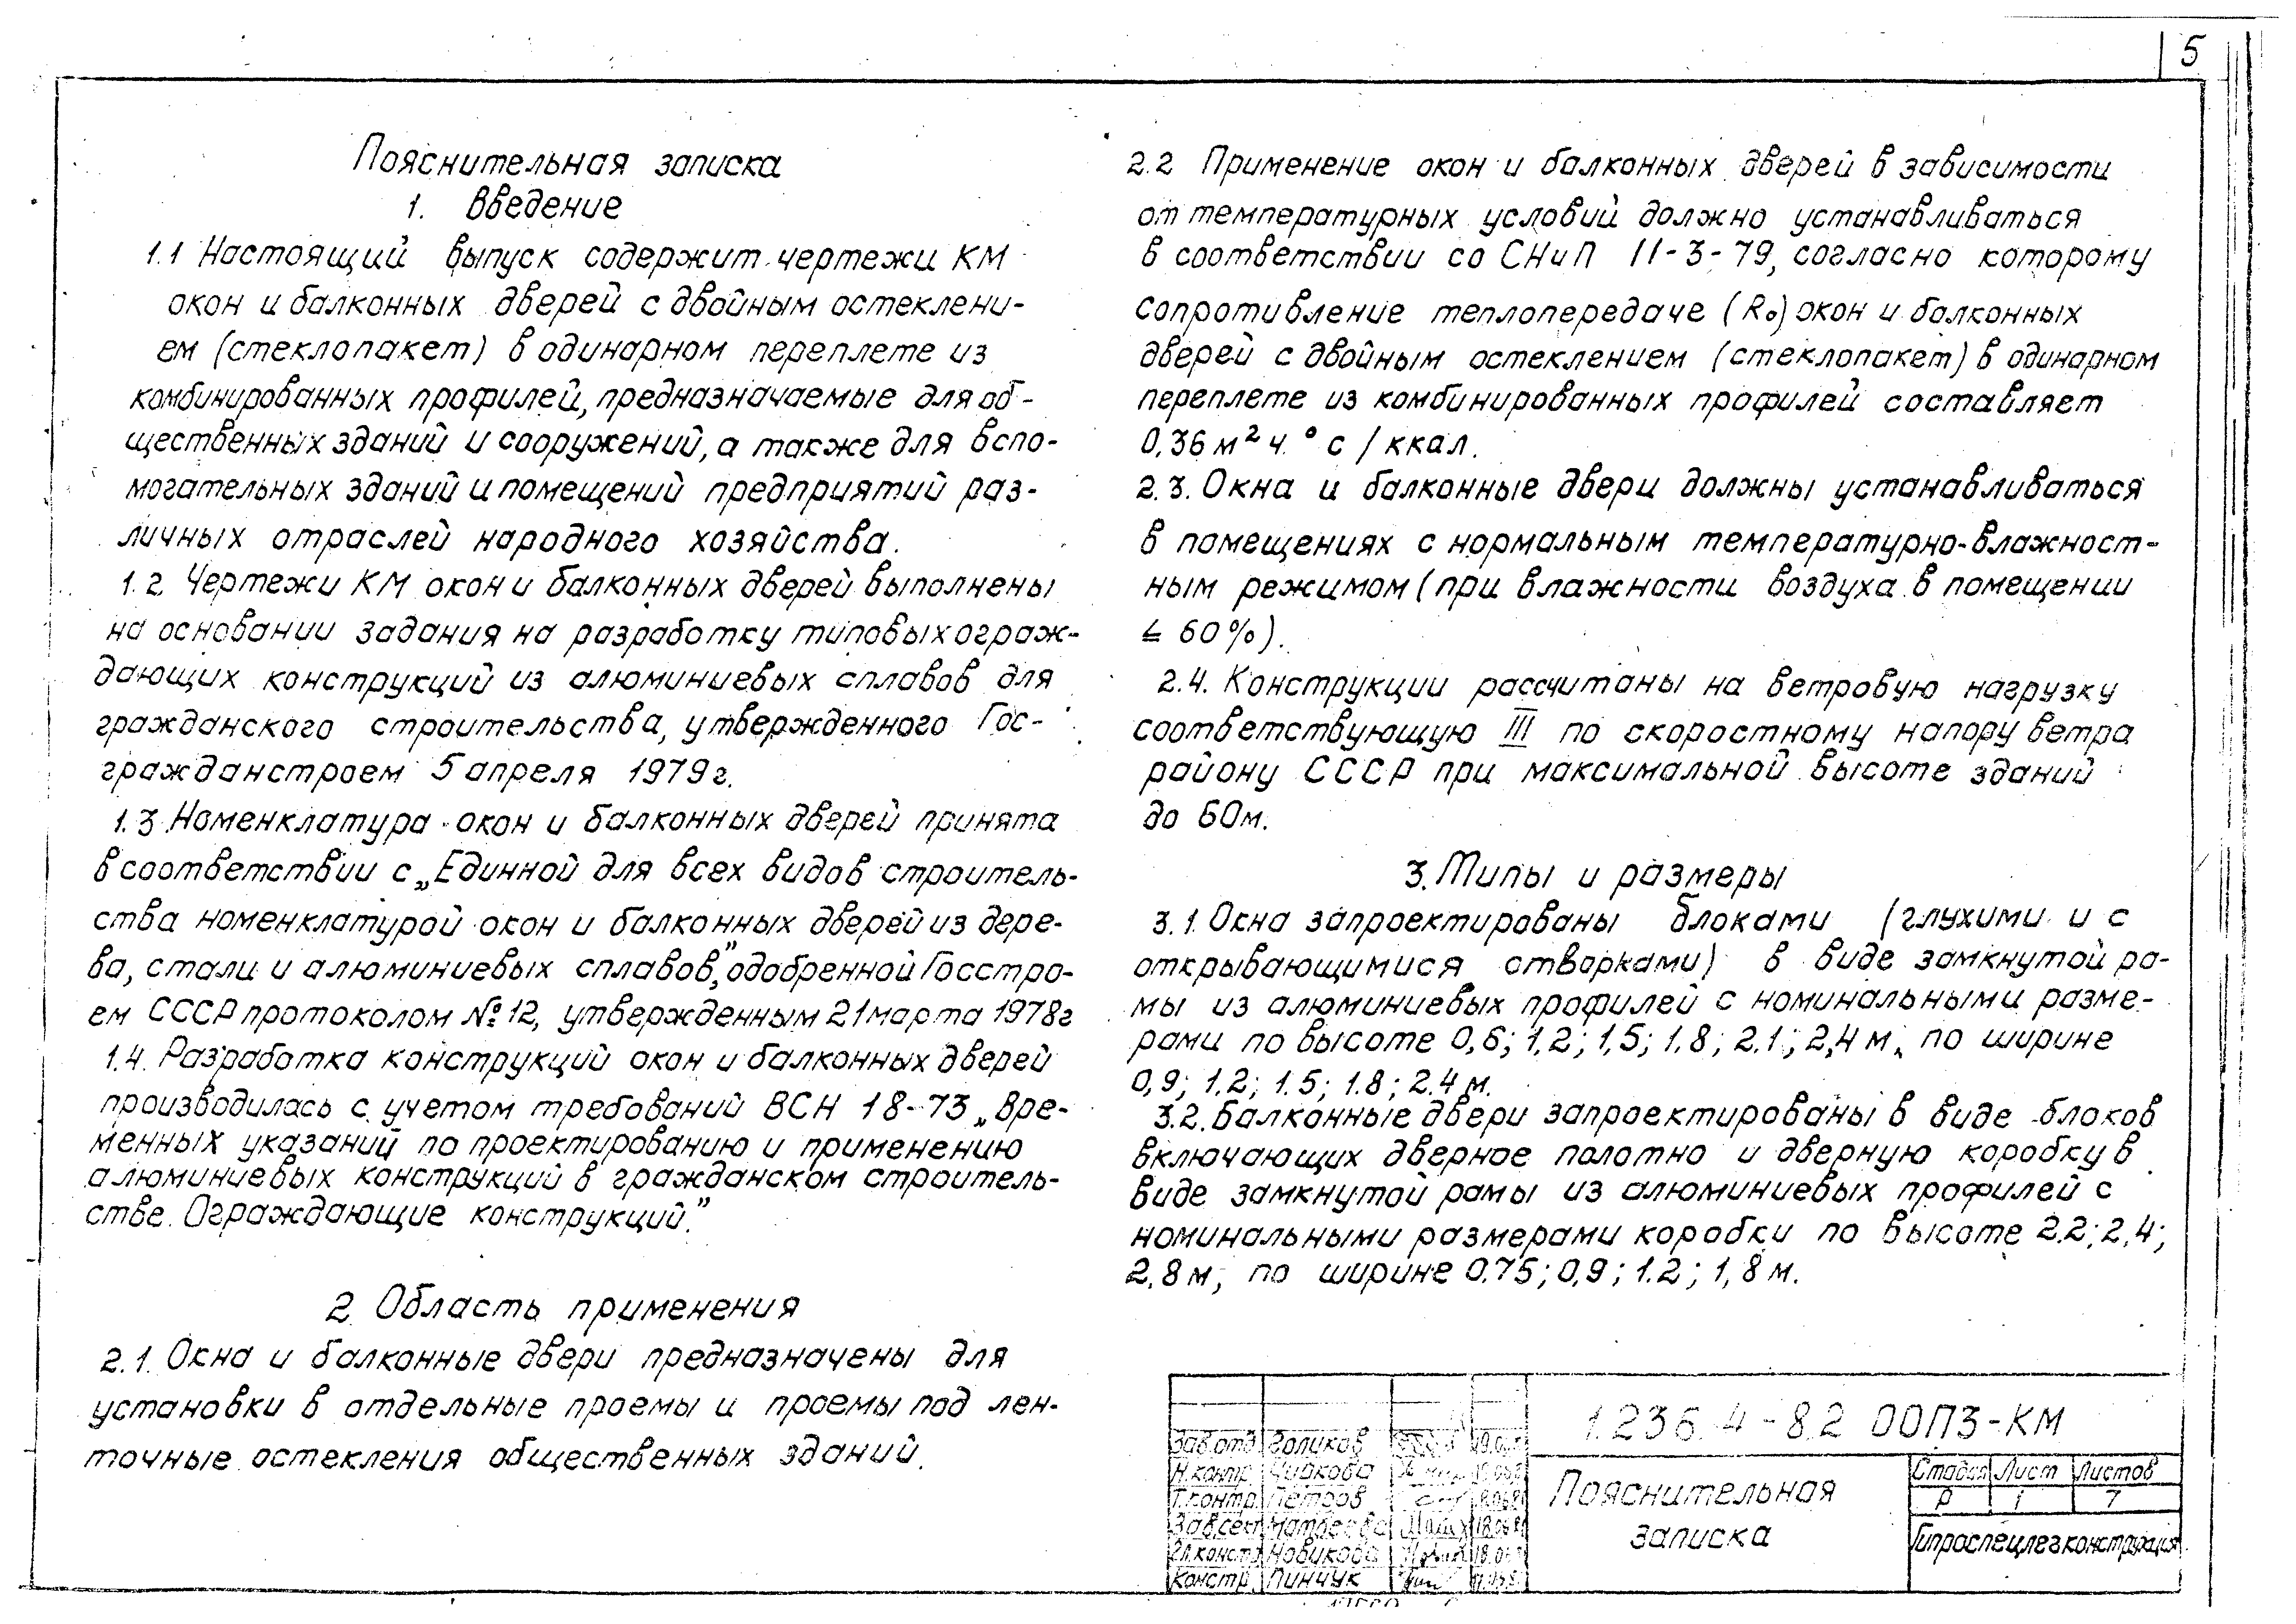 5
Пояснительная записка
1. Введение
1.1 Настоящий выпуск содержит чертежи КМ
окон и балконных дверей с двойным остеклени-
ем (стеклопакет) в одинарном переплете из
комбинированных профилей, предназначаемые для об-
щественных зданий и сооружений, а также для вспо-
могательных зданий и помещений предприятий раз-
личных отраслей народного хозяйства.
1.2. Чертежи КМ окон и балконных дверей выполнены
на основании задания на разработку типовых ограж-
дающих конструкций из алюминиевых сплавов для
гражданского строительства, утвержденного Гос-
гражданстроем 5 апреля 1979 г.
1.3 Номенклатура окон и балконных дверей принята
в соответствии с „Единной для всех видов строитель-
ства номенклатурой окон и балконных дверей из дере-
ва, стали и алюминиевых сплавов", одобренной Госстро-
ем СССР протоколом № 12, утвержденным 21 марта 1978г
1.4. Разработка конструкций окон и балконных дверей
производилась с учетом требований ВСН 18-73 „Вре-
менных указаний по проектированию и применению
алюминиевых конструкций в гражданском строитель-
стве. Ограждающие конструкций."
2. Область применения
2.1. Окна и балконные двери предназначены для
установки в отдельные проемы и проемы под лен-
точные остекления общественных зданий.
2.2 Применение окон и балконных дверей в зависимости
от температурных условий должно устанавливаться
в соответствии со СНиП II-3-79, согласно которому
сопротивление теплопередаче (Rо) окон и балконных
дверей с двойным остеклением (стеклопакет) в одинарном
переплете из комбинированных профилей составляет
0,36 м² ч. °с / ккал.
2.3. Окна и балконные двери должны устанавливаться
в помещениях с нормальным температурно-влажност-
ным режимом (при влажности воздуха в помещении
≤ 60%).
2.4. Конструкции рассчитаны на ветровую нагрузку
соответствующую III по скоростному напору ветра
району СССР при максимальной высоте зданий
до 60м.
3. Типы и размеры
3.1. Окна запроектированы блоками (глухими и с
открывающимися створками) в виде замкнутой ра-
мы из алюминиевых профилей с номинальными разме-
рами по высоте 0,6; 1,2; 1,5; 1.8; 2.1; 2,4 м, по ширине
0,9; 1.2; 1.5; 1.8; 2.4 м.
3.2. Балконные двери запроектированы в виде блоков
включающих дверное полотно и дверную коробку в
виде замкнутой рамы из алюминиевых профилей с
номинальными размерами коробки по высоте 2.2; 2,4;
2,8 м, по ширине 0.75; 0,9; 1.2; 1,8 м.
1.236.4-8.2 00ПЗ-КМ
Зав.отд. Голиков
Н.контр. Чиркова
Т.контр. Петров
Зав.сект Матвеева
Гл.констр. Новикова
Констр. Пинчук
Пояснительная
записка
Стадия Лист Листов
Р 1 7
Гипроспецлегконструкция